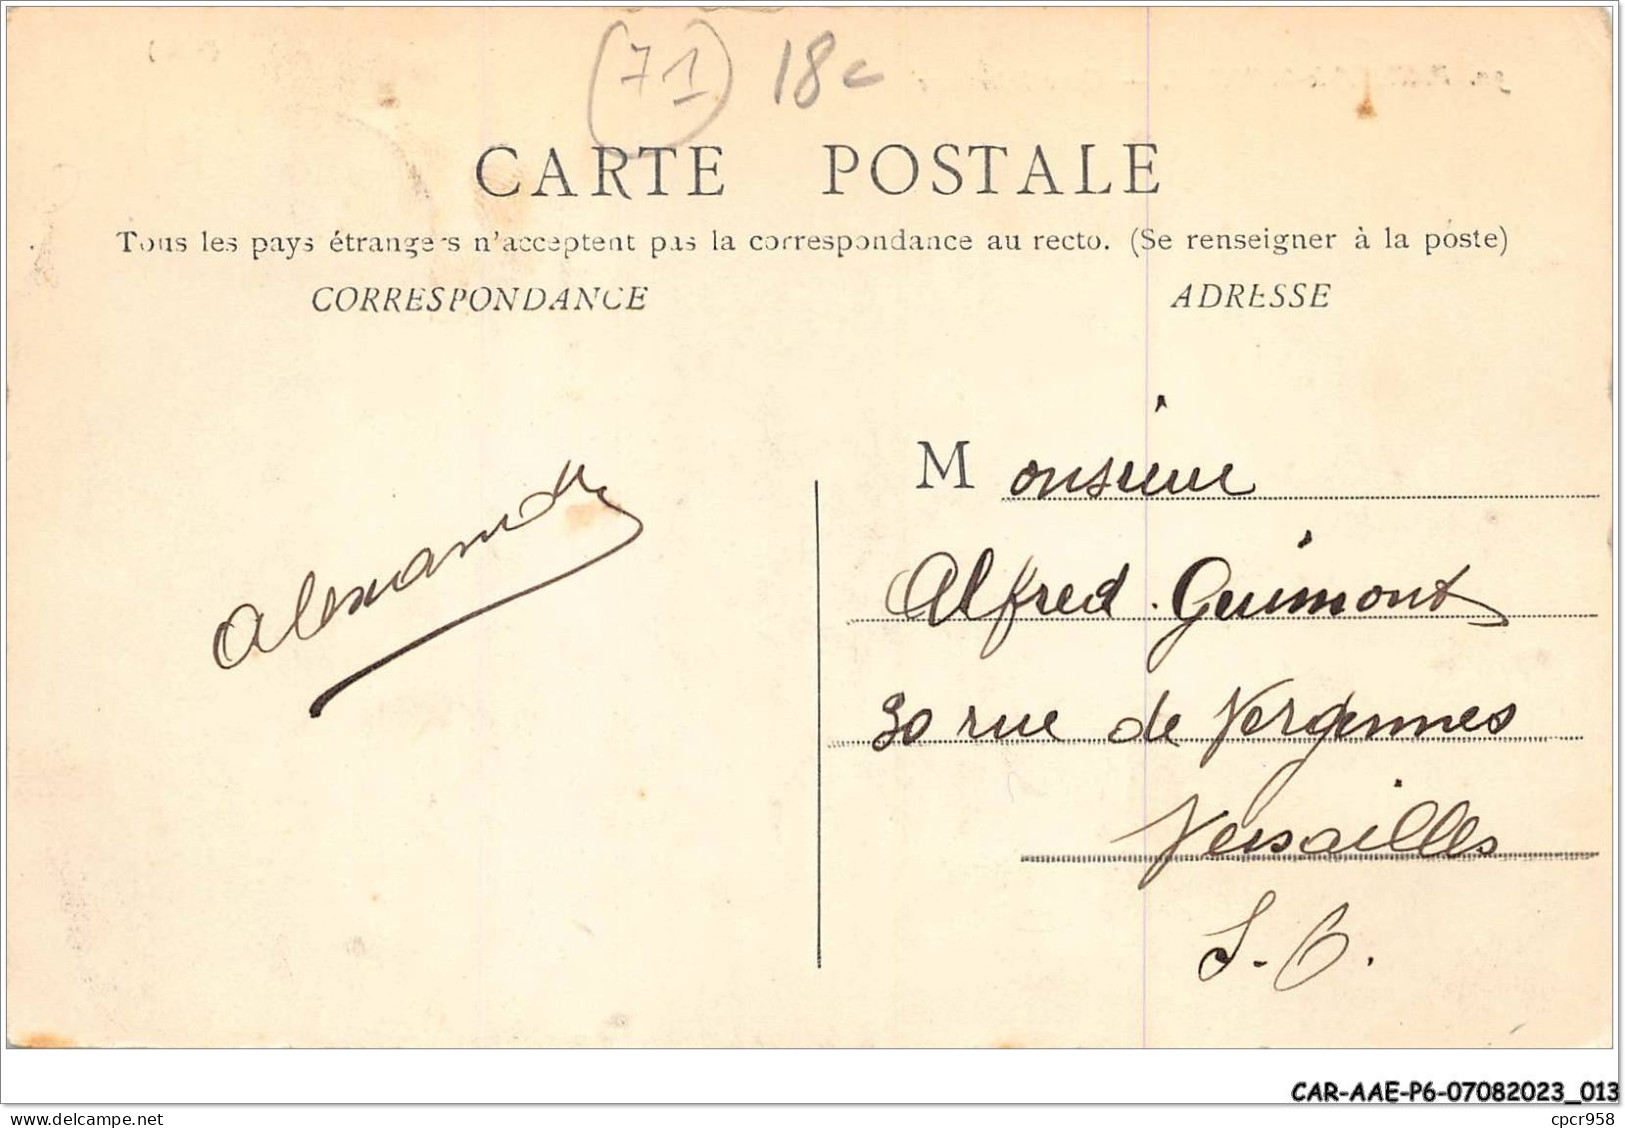 (71) 18c
CARTE POSTALE
Tous les pays étrangers n'acceptent pas la correspondance au recto. (Se renseigner à la poste)
CORRESPONDANCE
ADRESSE
Monsieur
Alexandre
Alfred Guimont
30 rue de Vergennes
Versailles
S.-O.
CAR-AAE-P6-07082023_013
cpcr958